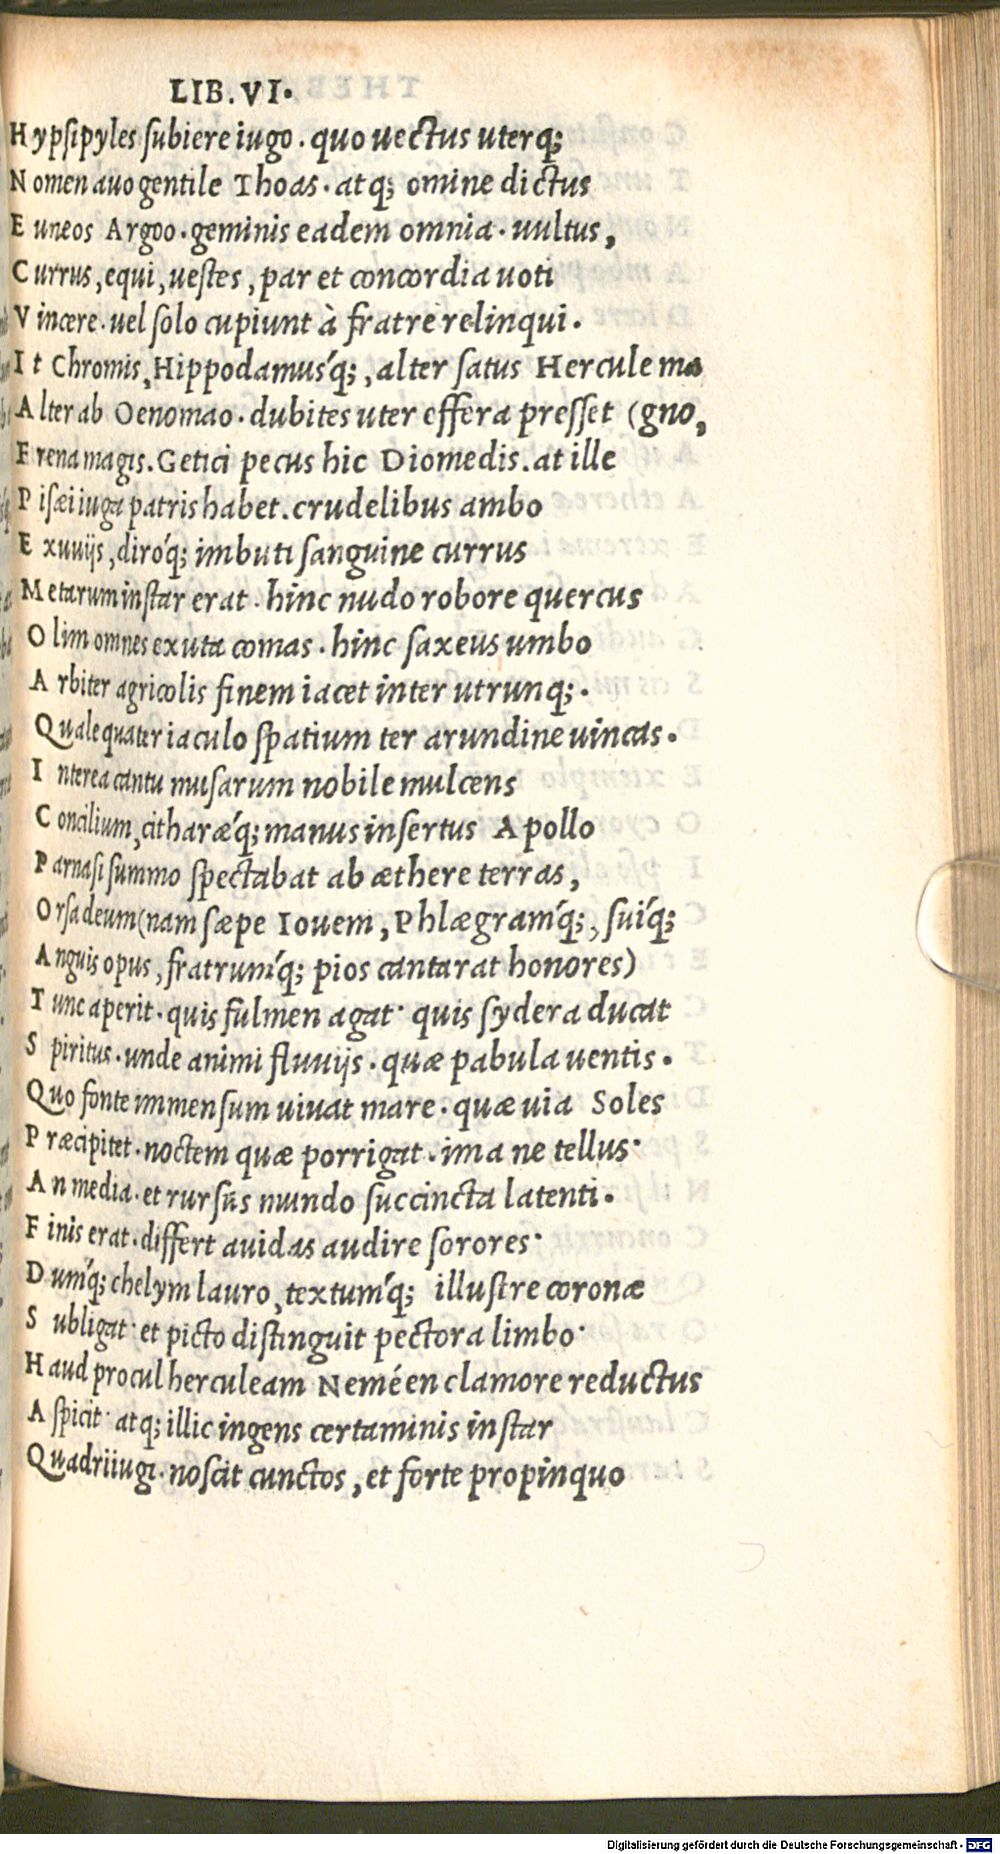 LIB.VI.
Hypsipyles subiere iugo. quo uectus uterq;
Nomen auo gentile Thoas. atq; omine dictus
Euneos Argoo. geminis eadem omnia. uultus,
Currus, equi, uestes, par et concordia uoti
Vincere. uel solo cupiunt à fratre relinqui.
It Chromis, Hippodamus'q;, alter satus Hercule ma
Alter ab Oenomao. dubites uter effera presset (gno,
Frena magis. Getici pecus hic Diomedis. at ille
Pisæi iuga patris habet. crudelibus ambo
Exuuijs, diro'q; imbuti sanguine currus
Metarum instar erat. hinc nudo robore quercus
Olim omnes exuta comas. hinc saxeus umbo
Arbiter agricolis finem iacet inter utrunq;.
Quale quater iaculo spatium ter arundine uincas.
Interea cantu musarum nobile mulcens
Concilium, citharæ'q; manus insertus Apollo
Parnasi summo spectabat ab æthere terras,
Orsa deum (nam sæpe Iouem, Phlægram'q;, sui'q;
Anguis opus, fratrum'q; pios cantarat honores)
Tunc aperit. quis fulmen agat. quis sydera ducat
Spiritus. unde animi fluuijs. quæ pabula uentis.
Quo fonte immensum uiuat mare. quæ uia Soles
Præcipitet. noctem quæ porrigat. ima ne tellus.
An media. et rursus mundo succincta latenti.
Finis erat. differt auidas audire sorores.
Dum'q; chelym lauro, textum'q; illustre coronæ
Subligat. et picto distinguit pectora limbo.
Haud procul herculeam Neméen clamore reductus
Aspicit. atq; illic ingens certaminis instar
Quadriiugi. noscit cunctos, et forte propinquo
Digitalisierung gefördert durch die Deutsche Forschungsgemeinschaft - DFG